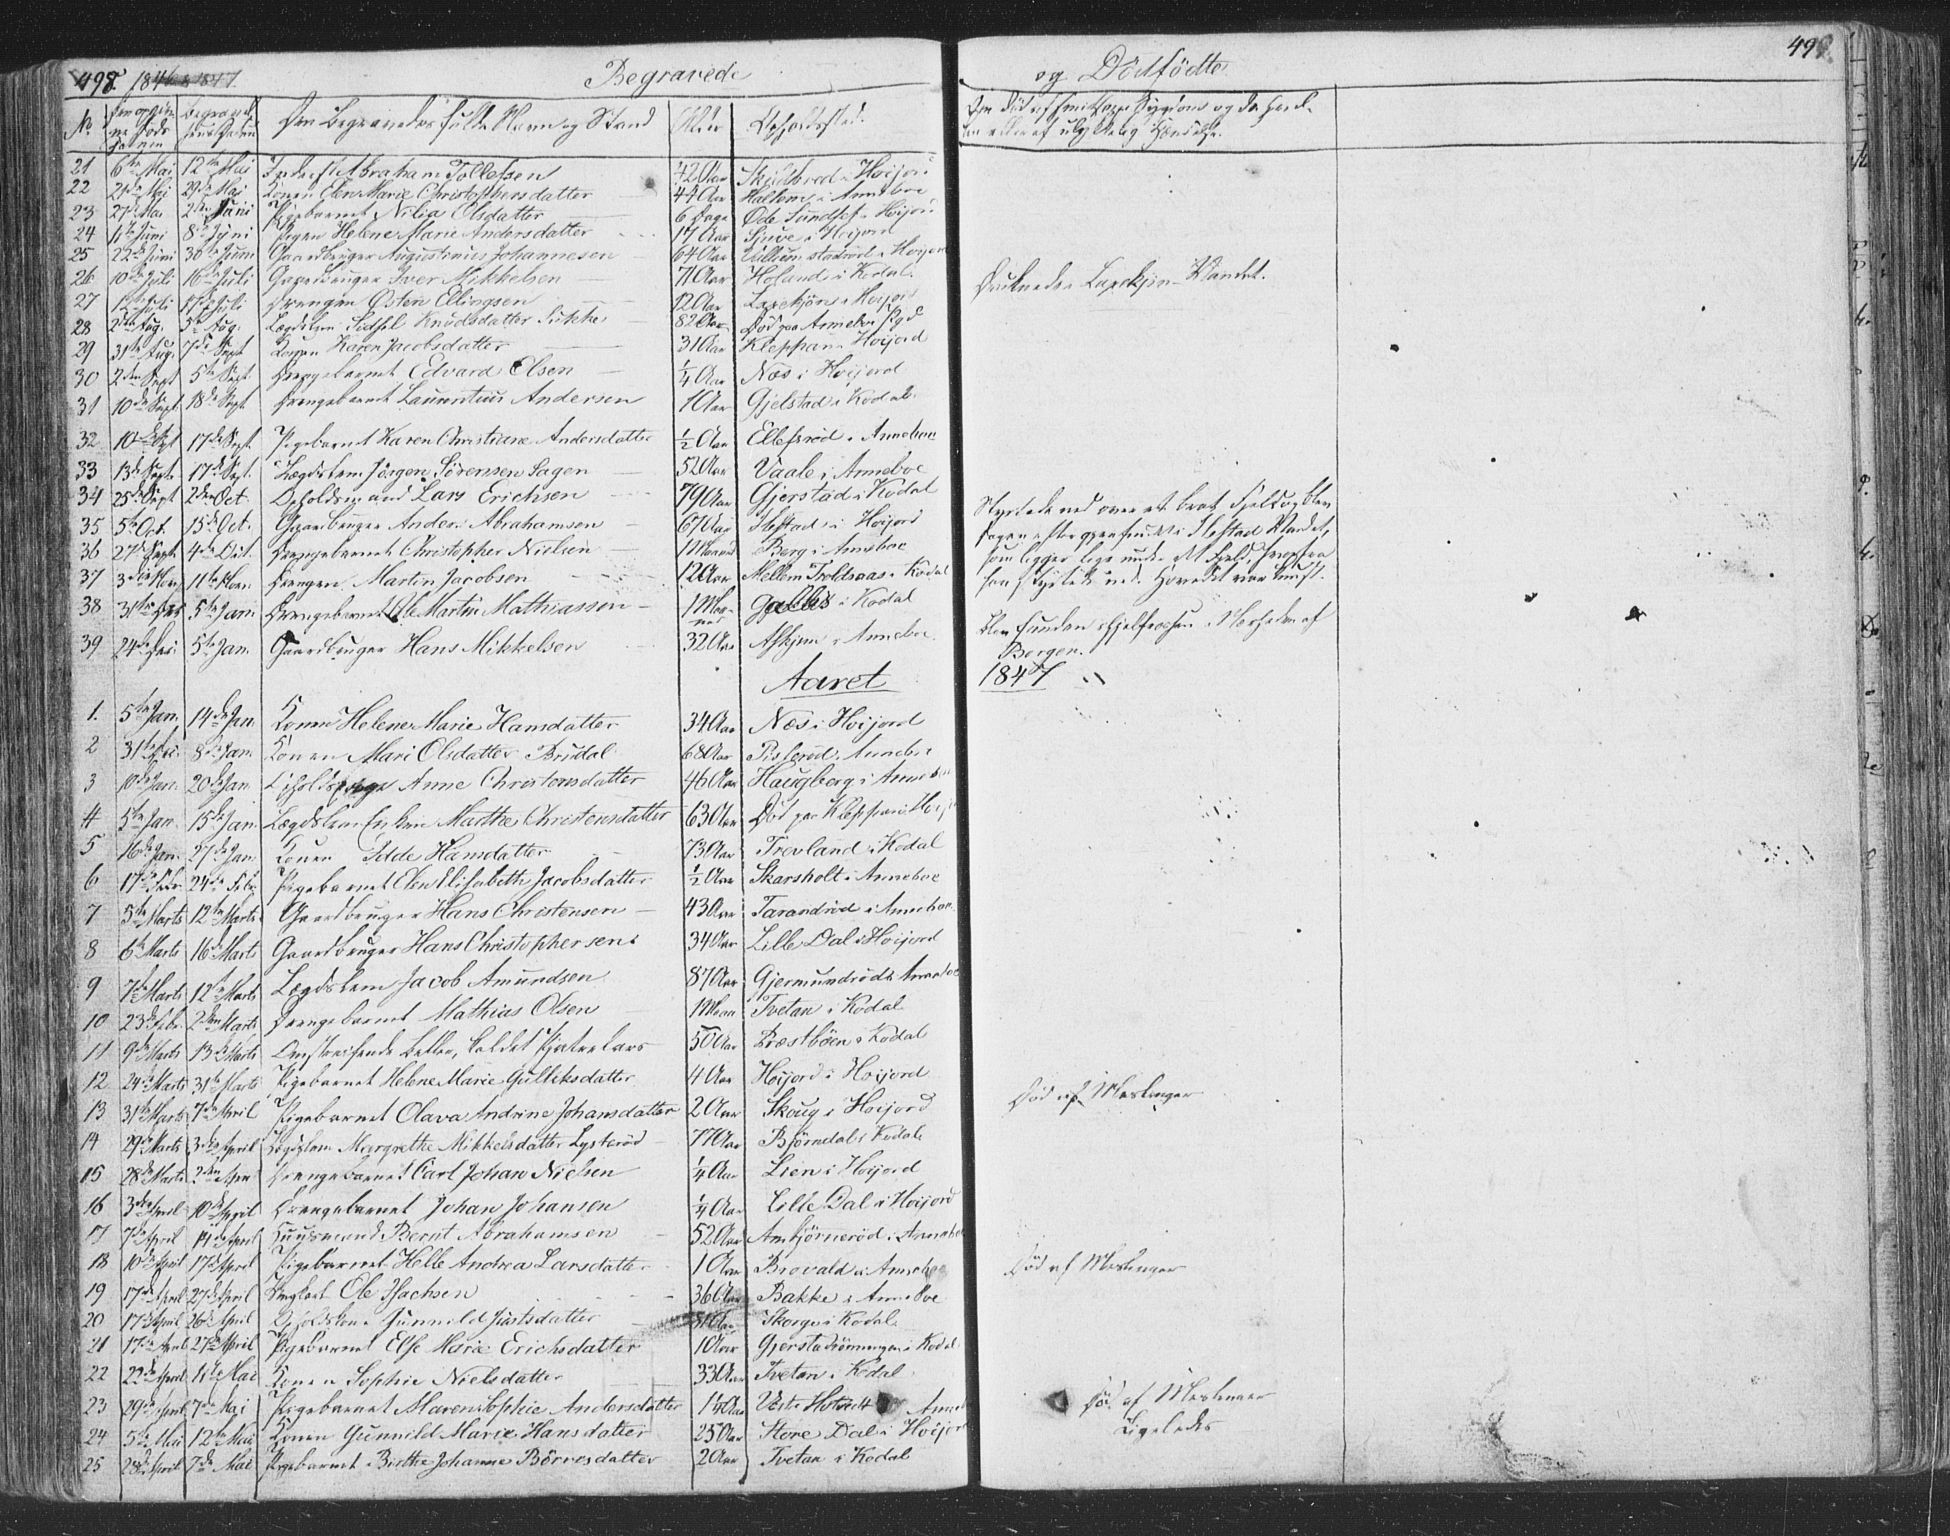 498. 1846 & 1847. Begravede
og Dödfödte 499.
No. Begravel Den Begravedes fulde Navn og Stand Alder Opholdssted.
21 6te Mai 12te Mai Inderst Abraham Tollefsen 42 Aar Skjildbred i Hoijord
22 21de Mai 29de Mai Konen Elen Marie Christophersdatter 44 Aar i Anneboe
23 27de Mai 2den Juni Pigebarnet Nilia Olsdatter 6 Dage Öde Sundset i Hoijord
24 Juni 8de Juni Pigen Helene Marie Andersdatter 17 Aar i Hoijord
25 22de Juni 30te Juni Gaardbruger Augustinus Johannesen 64 Aar i Hoijord
26 10de Juli 16de Juli Gaardbruger Iver Mikkelsen 71 Aar Holand i Kodal.
27 Juli 17de Juli Drengen Östen Ellingsen 12 Aar i Hoijord
Druknede i Vandet.
28 2den Aug. 5te Aug. Lægdslem Sidsel Knudsdatter 82 Aar Död paa Anneboe
29 31te Aug. 7de Sept Konen Karen Jacobsdatter 31 Aar Kleppan i Hoijord
30 2den Sept 5te Sept. Drengebarnet Edvard Olsen 1/4 Aar Næs i Hoijord
31 10de Sept 18de Sept. Drengebarnet Laurentius Andersen 1 Aar Gjelstad i Kodal.
32 10de Sept 17de Sept. Pigebarnet Karen Christiane Andersdatter 1/2 Aar Ellefsröd i Anneboe
33 13de Sept. 17de Sept. Lægdslem Jörgen Sörensen Sagen 52 Aar Vaale i Anneboe
34 25de Sept 2den Oct. Opholdsmand Lars Erichsen 79 Aar Gjerstad i Kodal
35 5te Oct. 15de Oct. Gaardbruger Anders Abrahamsen 67 Aar Ilestad i Hoijord
Styrtede ned over et brat Field og blev
Dagen efter gjenfundet i Ilestad Vandet,
som ligger lige under det Field, hvorfra
han styrtede ned. Hovedet var knust.
36 27de Sept. 4de Oct. Drengebarnet Christopher Nielsen 1 Maaned Berg i Anneboe
37 3die Nov. 11te Nov. Drengen Martin Jacobsen 12 Aar Mellem Troldsaas i Kodal
38 31te Dec 5te Jan. Drengebarnet Ole Martin Mathiassen 1 Maaned i Kodal
39 24de Dec. 5te Jan. Gaardbruger Hans Mikkelsen 32 Aar Askjem i Anneboe.
Blev funden ihjelfrosen i Nærheden af
Borgen.
Aaret 1847
1. 5te Jan. 14de Jan. Konen Helene Marie Hansdatter 34 Aar Næs i Hoijord
2 31te Dec. 8de Jan. Konen Mari Olsdatter Brudal 68 Aar Pisseröd i Anneboe
3 10de Jan. 20de Jan. Anne Christensdatter 46 Aar Haugberg i Anneboe
4 5te Jan. 15de Jan. Lægdslem Enken Marthe Christensdatter 63 Aar Död paa Kleppan i Hoijord
5 16de Jan. 27de Jan Konen Idde Hansdatter 73 Aar Trevland i Kodal
6 17de Febr. 24de Febr. Pigebarnet Elen Elisabeth Jacobsdatter 1/2 Aar Skarsholt i Anneboe
7 5te Marts 12te Marts Gaardbruger Hans Christensen 43 Aar Tarandröd i Anneboe.
8 6te Marts 16de Marts Gaardbruger Hans Christophersen 34 Aar Lille Dal i Hoijord
9 7de Marts 12te Marts Lægdslem Jacob Amundsen 87 Aar Gjermundröd i Anneboe
10 23de Febr. 2den Marts Drengebarnet Mathias Olsen 1 Maan Tvetan i Kodal
11 9de Marts 13de Marts Omstreifende Betler, kaldet 50 Aar Præstböen i Kodal
12 24de Marts 31te Marts Pigebarnet Helene Marie Gulliksdatter 4 Aar Hoijord i Hoijord
13 31te Marts 7de April Pigebarnet Olava Andrine Johansdatter 2 Aar Skoug i Hoijord
Död af Meslinger
14 29de Marts 3die April Lægdslem Margrethe Mikkelsdatter Lysteröd 77 Aar Björndal i Kodal
15 28de Marts 2den April Drengebarnet Carl Johan Nielsen 1/4 Aar Lien i Hoijord
16 3die April 10de April Drengebarnet Johan Johansen 1/4 Aar Lille Dal i Hoijord
17 7de April 14de April Huusmand Bernt Abrahamsen 52 Aar Ambjörneröd i Anneboe
18 10de April 17de April Pigebarnet Helle Andrea Larsdatter 1 Aar Brovald i Anneboe
Död af Meslinger
19 17de April 27de April Ole Isachsen 36 Aar Bakke i Anneboe
20 17de April 26de April Gunnild Justsdatter Aar Skorge i Kodal
21 17de April 27de April Pigebarnet Else Marie Erichsdatter 1 Aar i Kodal
22 22de April 1te Mai Konen Sophie Nielsdatter 33 Aar Tvetan i Kodal
23 29de April 7de Mai Pigebarnet Maren Sophie Andersdatter 1 1/4 Aar Vestre Anneb
Död af Meslinger
24 5te Mai 12te Mai Konen Gunnild Marie Hansdatter 25 Aar Store Dal i Hoijord
Ligeledes
25 28de April 7de Mai Pigebarnet Birthe Johanne Börresdatter 2 Aar Tvetan i Kodal